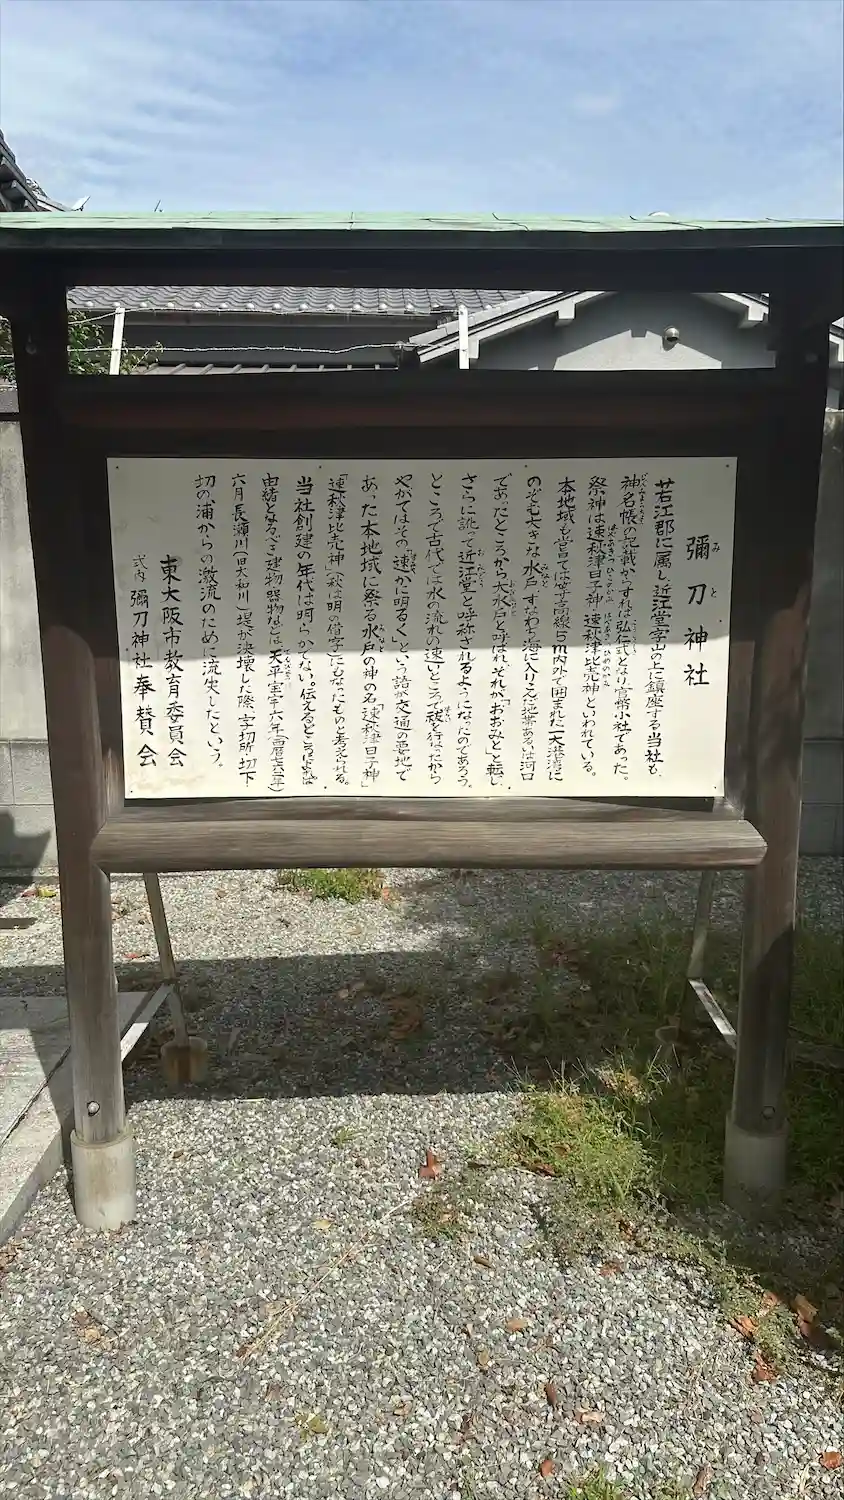 彌刀神社
若江郡に属し、近江堂字山の上に鎮座する当社も、
神名帳の記載からすれば弘仁式となり官幣小社であった。
祭神は速秋津日子神、速秋津比売神といわれている。
本地域も嘗ては等高線5m内外で囲まれた一大港湾に
のぞむ大きな水戸すなわち海に入りこんだ地帯あるいは河口
であったところから大水戸と呼ばれ、それが「おおみと」と転じ、
さらに訛って近江堂と呼称されるようになったのであろう。
ところで古代では水の流れの速いところで祓を行なったから
やがてはその「速かに明るく」という語が交通の要地で
あった本地域に祭る水戸の神の名「速秋津日子神」
「速秋津比売神」(秋は明の借字)にもなったものと考えられる。
当社創建の年代は明らかでない。伝えるところによれば
由緒となるべき建物、器物などは、天平宝字六年(西暦七六二年)
六月長瀬川(旧大和川)堤が決壊した際、字切所・切下
切の浦からの激流のために流失したという。
東大阪市教育委員会
式内 彌刀神社奉賛会